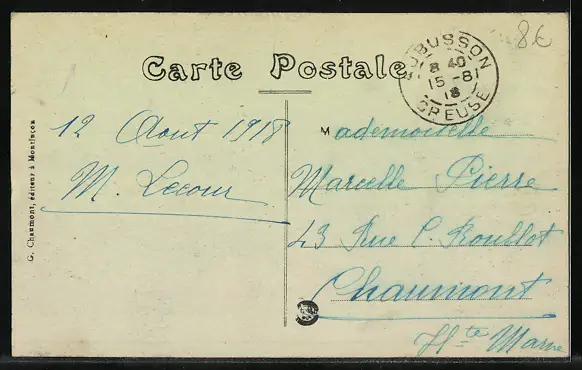 8€
Carte Postale
AUBUSSON
8 40
15 -8
18
CREUSE
12 Aout 1918
M. Lecour
Mademoiselle
Marcelle Pierre
43 Rue C. Roullot
Chaumont
Hte Marne
G. Chaumont, éditeur à Montluçon